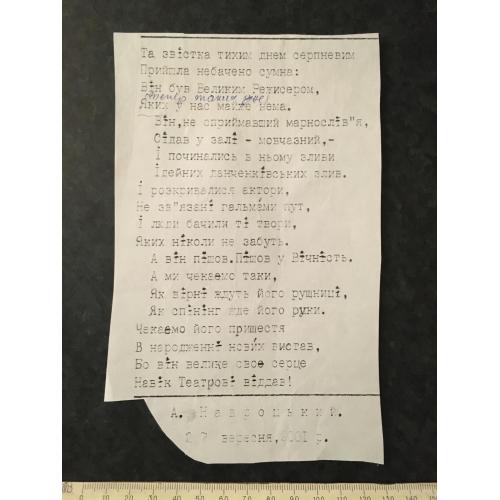 Та звістка тихим днем серпневим
Прийшла небачено сумна:
Він був Великим Режисером,
тепер таких уже
Яких у нас майже нема.
Він,не сприймавший марнослів"я,
Сідав у залі - мовчазний,-
І починались в ньому зливи
Ідейних данченківських злив.
І розкривалися актори,
Не зв"язані гальмами пут,
І люди бачили ті твори,
Яких ніколи не забуть.
А він пішов.Пішов у Вічність.
А ми чекаємо таки,
Як вірні ждуть його рушниці,
Як спінінг жде його руки.
Чекаємо його пришестя
В народженні нових вистав,
Бо він велике своє серце
Навік Театрові віддав!
А. Навроцький.
27 вересня,2001 р.
10 20 30 40 50 60 70 80 90 100 110 120 130 140